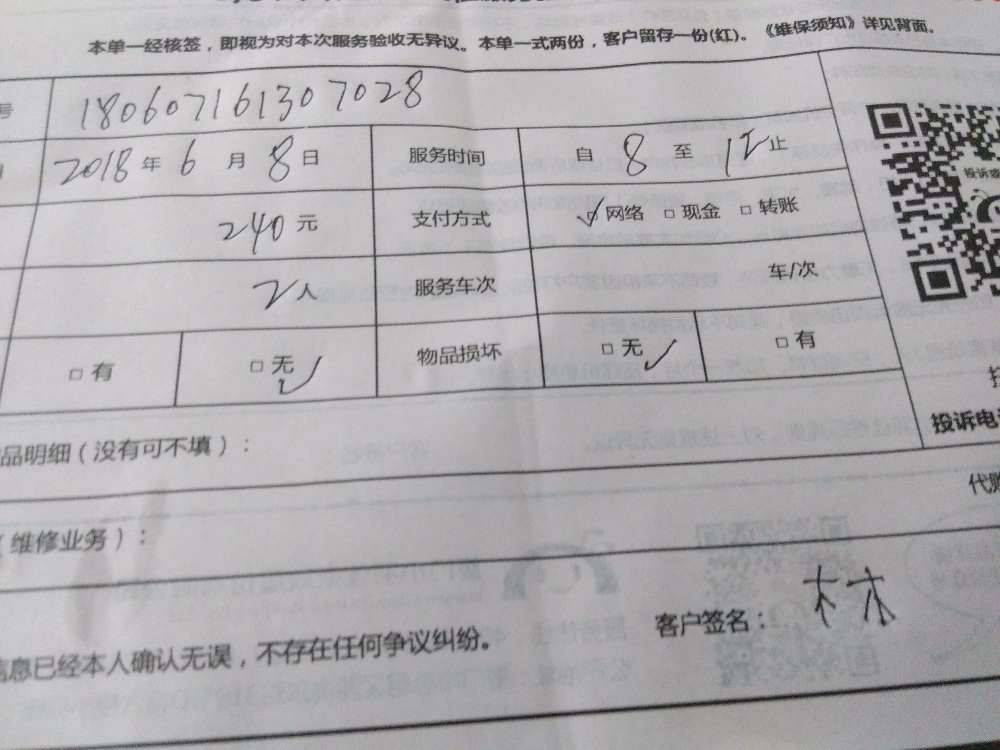 本单一经核签，即视为对本次服务验收无异议。本单一式两份，客户留存一份(红)。《维保须知》详见背面。
号 180607161307028
2018年6月8日 服务时间 自8至12止
240元 支付方式 ☑网络 □现金 □转账
投诉或
2人 服务车次 车/次
□有 □无✓ 物品损坏 □无✓ □有
品明细（没有可不填）：
投诉电
代购
（维修业务）：
信息已经本人确认无误，不存在任何争议纠纷。 客户签名：